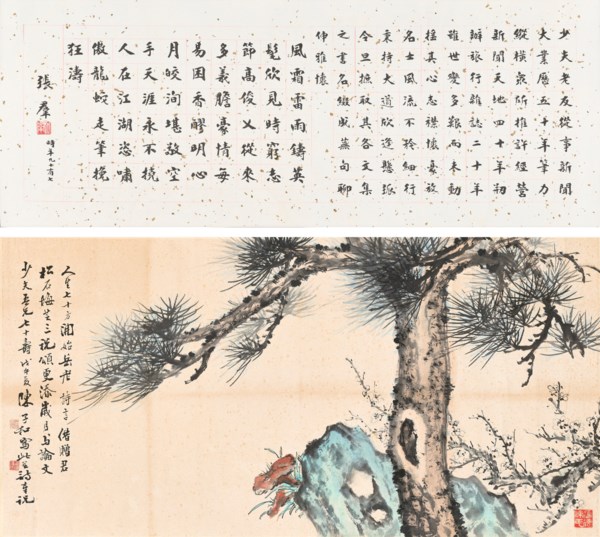 少夫老友從事新聞
大業歷五十年筆力
縱橫衆所推許經營
新聞天地四十年初
辦旅行雜誌二十年
雖世變多艱而未動
搖其心志襟懷豪放
名士風流不拘細行
秉持大道欣逢懸弧
令旦摭取其各文集
之書名綴成蕪句聊
伸雅懷
風霜雷雨鑄英
髦欣見時窮志
節高俊乂從來
多義膽豪情每
易困香醪明心
月皎洵堪敵空
手天涯永不撓
人在江湖恣嘯
傲龍蛇走筆挽
狂濤
張羣
時年九十有七
人生七十正開始岳老詩言借贈君
松石梅芝三祝頌更添歲月與論文
少夫吾兄七十壽戊申夏陳子和寫此並詩奉祝